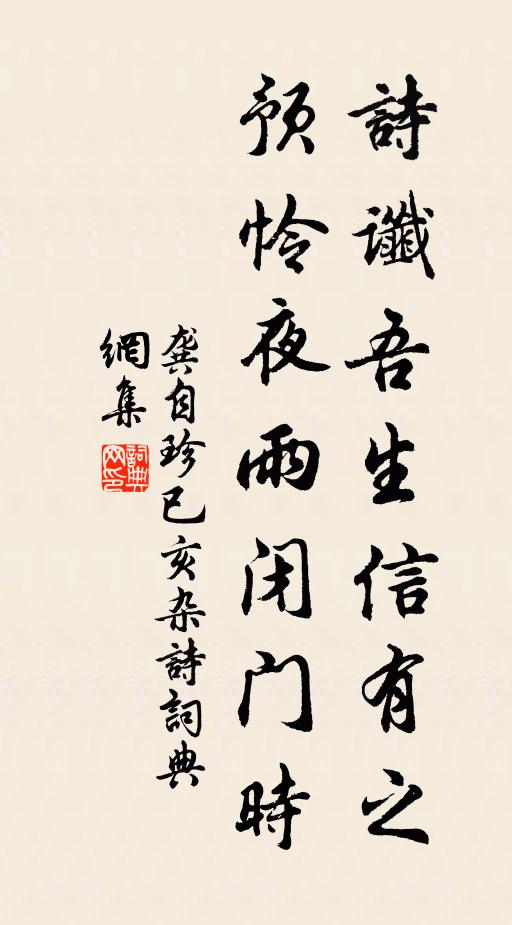 詩讖吾生信有之
預怜夜雨闭门時
龔自珍已亥杂詩詞典
網集
詞典
网印